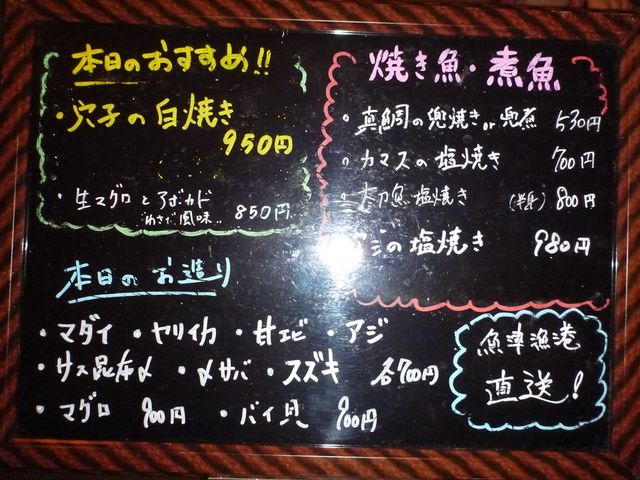 本日のおすすめ!!
・穴子の白焼き
950円
・生マグロとアボカド
わさび風味.. 850円
焼き魚・煮魚
・真鯛の兜焼きor兜煮 530円
・カマスの塩焼き 700円
・太刀魚塩焼き (半身) 800円
アジの塩焼き 980円
本日のお造り
・マダイ ・ヤリイカ ・甘エビ ・アジ
・サス昆布〆 ・〆サバ ・スズキ 各700円
・マグロ 900円 ・バイ貝 900円
魚津漁港
直送!